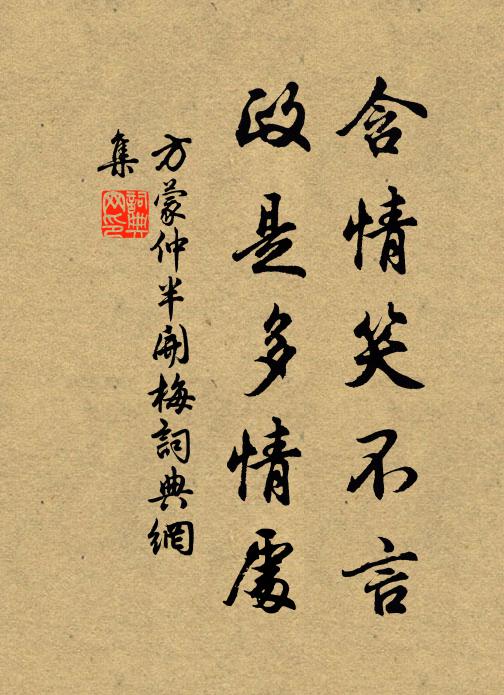 含情笑不言
政是多情處
方蒙仲半開梅詞典網
集
詞典網印